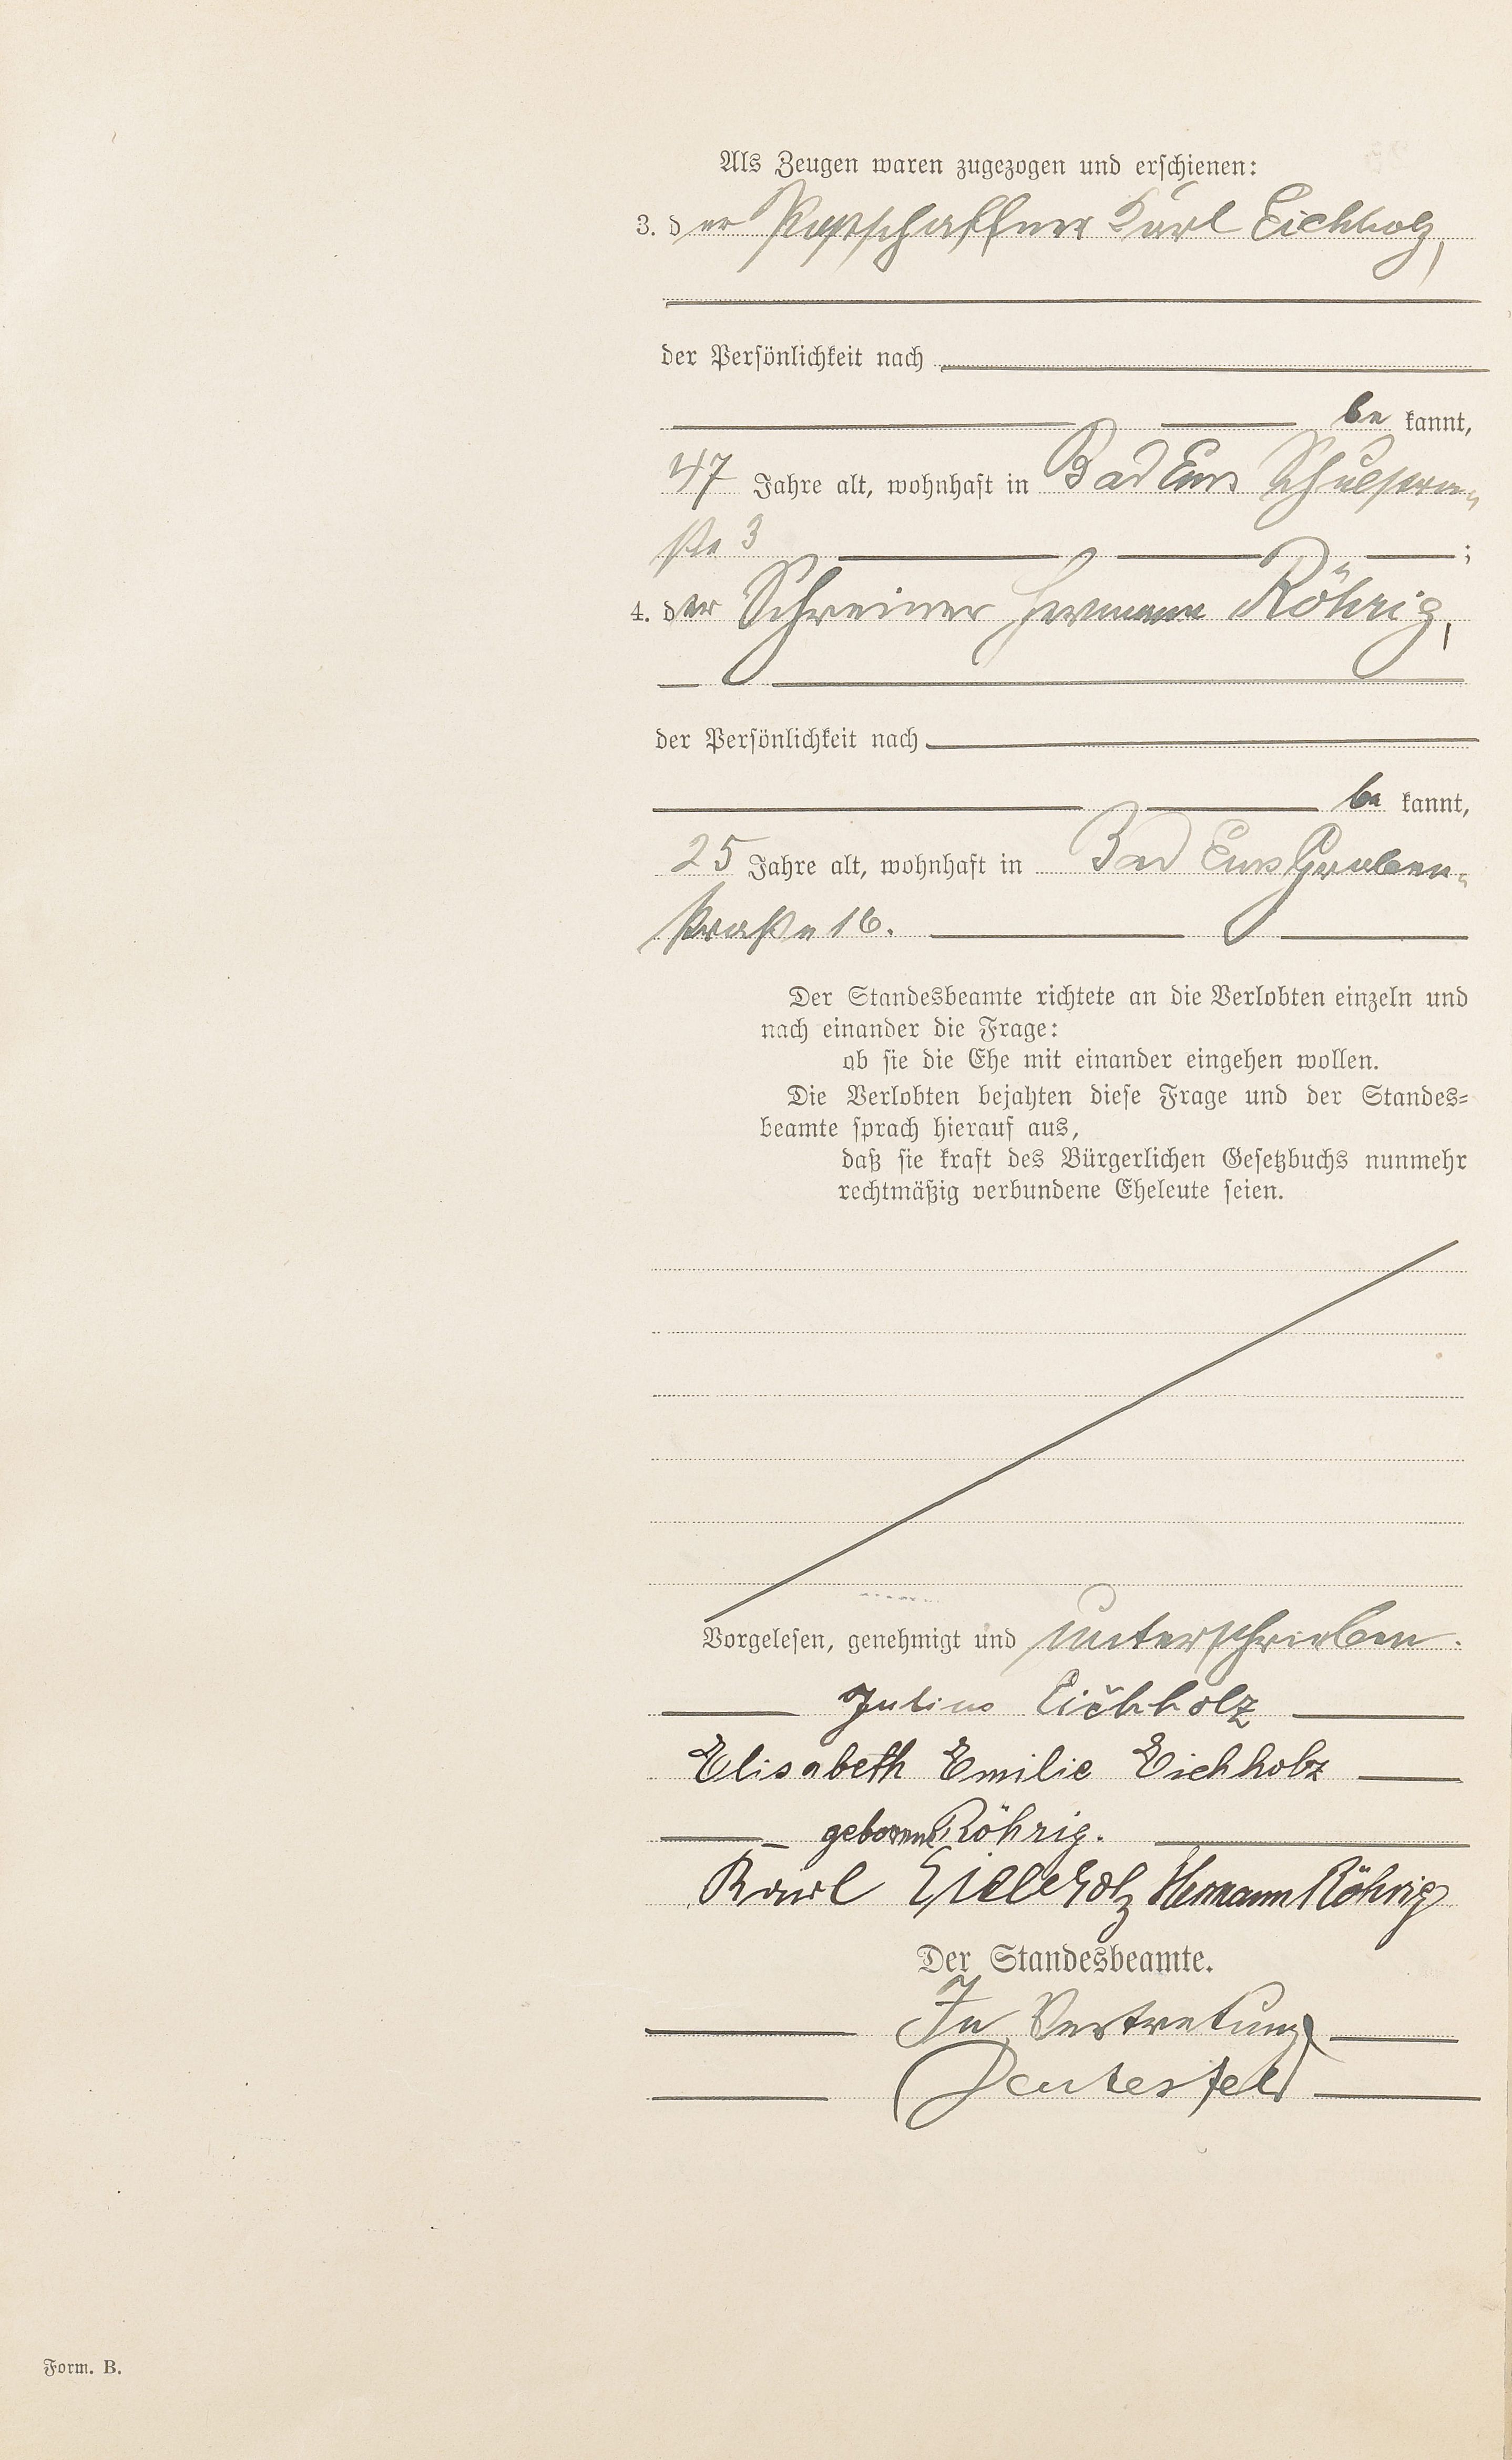 Als Zeugen waren zugezogen und erschienen:
3. der Postschaffner Karl Eichholz,
der Persönlichkeit nach
be kannt,
47 Jahre alt, wohnhaft in Bad Ems Schulstra-
ße 3 ;
4. der Schreiner Hermann Röhrig,
der Persönlichkeit nach
be kannt,
25 Jahre alt, wohnhaft in Bad Ems Graben-
straße 16.
Der Standesbeamte richtete an die Verlobten einzeln und
nach einander die Frage:
ob sie die Ehe mit einander eingehen wollen.
Die Verlobten bejahten diese Frage und der Standes-
beamte sprach hierauf aus,
daß sie kraft des Bürgerlichen Gesetzbuchs nunmehr
rechtmäßig verbundene Eheleute seien.
Vorgelesen, genehmigt und unterschrieben.
Julius Eichholz
Elisabeth Emilie Eichholz
geborene Röhrig.
Karl Eichholz Hermann Röhrig
Der Standesbeamte.
In Vertretung
Deutesfeld
Form. B.